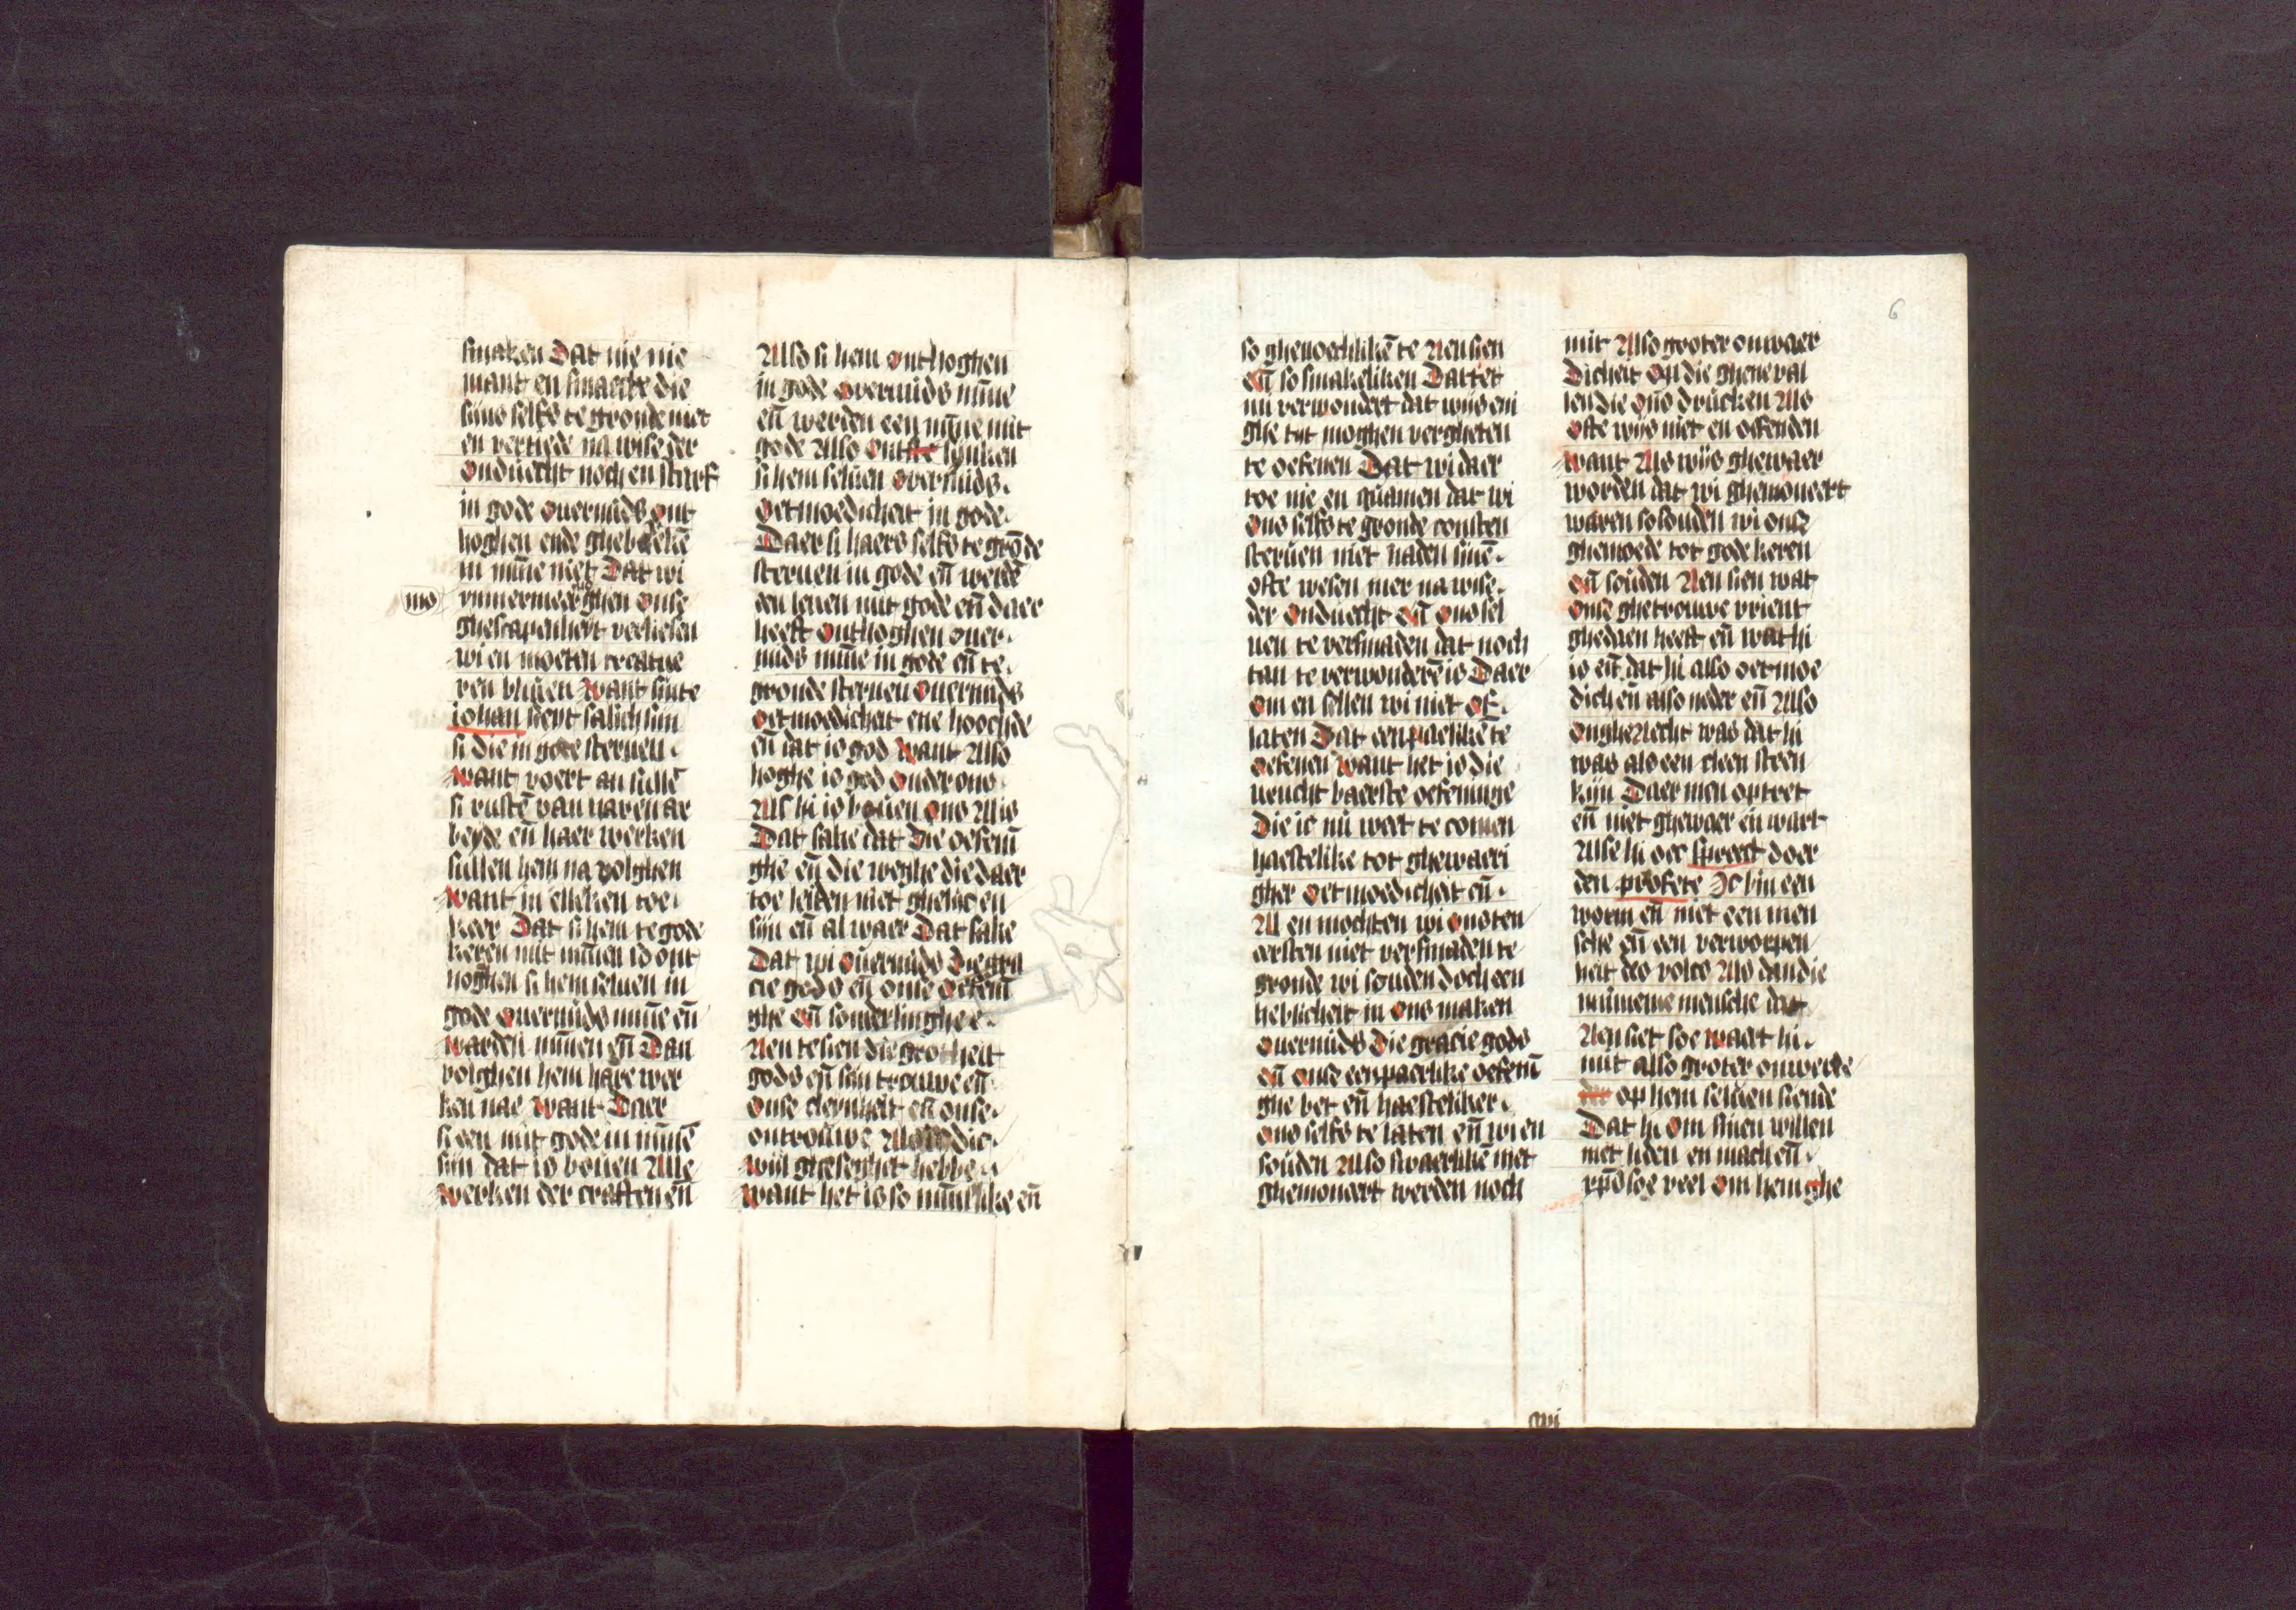 smaken Dat nie nie
mant en smaecte die
sijns selfs te gronde niet
en vertiede na wise der
onduecht noch en starf
in gode ouermids ont
hoghen ende ghebreke
in mīne niet Dat wi
mo
ymmermeer ghen onse
ghescapenheit verliesen
wi en moeten creatue
ren bliuen want sinte
iohan seyt salich sijn
si die in gode steruen.
want voert an sullē
si rustē van haren ar
beyde eñ haer werken
sullen hem na volghen
want in elleken toe
keer Dat si hem te gode
keren mit mīnen so ont
hoghen si hem seluen in
gode ouermids mīne eñ
warden mīnen eñ Dan
volghen hem hare wer
ken nae want Daer
si een mit gode in mīnē
sijn dat is bouen Alle
werken der craften eñ
Also si hem onthoghen
in gode overmids mīne
eñ werden een mīne mit
gode Also ontsinken
si hem seluen overmids.
oetmoedicheit in gode.
Daer si haers selfs te grōde
steruen in gode eñ werdē
een leuen mit gode eñ daer
heeft onthoghen ouer.
mids mīne in gode eñ te.
gronde steruen ouermids
oetmoedicheit ene hoochde
eñ dat is god want Also
hoghe is god onder ons
Als hi is bouen ons Alis
Dat sake dat Die oefenī
ghe eñ die weghe die daer
toe leiden niet ghelijc en
sijn eñ al waer Dat sake
Dat wi ouermids Die gra
cie gods eñ onse oefenī
ghe eñ sonderlinghe.
Aen te sien die grotheit
gods eñ sijn trouwe eñ
onse cleynheit eñ onse.
ontrouwe Als die.
wijl gheseghet hebbe.
want het is so mīnlike eñ
6
so ghenoechlikē te Aen sien
eñ so smakeliken Dattet
mi verwondert dat wijs eni
ghe tijt moghen vergheten
te oefenen Dat wi daer
toe nie en quamen dat wi
ons selfs te gronde consten
steruen niet na den sinē.
ofte wesen mer na wise.
der onduecht eñ ons sel
uen te versmaden dat noch
tan te verwonderē is Daer
om en sellen wi niet of.
laten Dat eenpaerlikē te
oefenen want het is die
urucht baerste oefeninge
Die ic nu weet te comen
haestelike tot ghewaeri
gher oetmoedicheit eñ.
Al en mochten wi ons ten
eersten niet versmaden te
gronde wi souden doch een
heblicheit in ons maken
ouermids Die gracie gods
eñ onse eenpaerlike oefenī
ghe bet eñ haesteliker.
ons selfs te laten eñ wi en
souden Also swaerlikē niet
ghemoueert werden noch
mit Also groter onwaer
Dicheit op die ghene val
len die ons drucken Als
ofte wijs niet en oefenden
want Als wijs ghewaer
worden dat wi ghemoueert
waren so souden wi ons
ghemoede tot gode keren
eñ souden Aen sien wat
onse ghetrouwe vrient
ghedaen heeft eñ wat hi
is eñ dat hi also oetmoe
dich eñ also neder eñ Also
ongheAecht was dat hi
was als een cleen steen
kijn Daer men op tret
eñ niet ghewaer en wart
Alse hi oec spreect doer
den profete Ic bin een
worm eñ niet een men
sche eñ een verworpen
heit des volcs Als dan die
mīnnende mensche dat
Aen siet soe waert hi.
mit also groter onwerde
op hem seluen siende
Dat hi om sinen willen
niet liden en mach eñ.
xp̄s soe veel om hem ghe